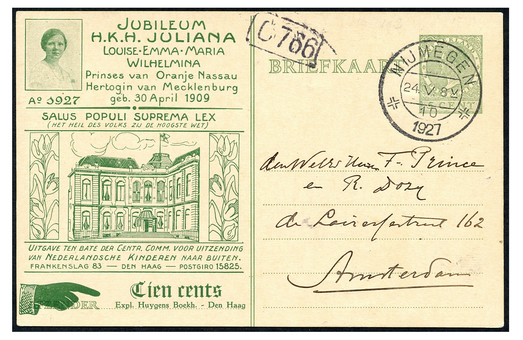 JUBILEUM
H.K.H. JULIANA
LOUISE-EMMA-MARIA
WILHELMINA
Prinses van Oranje Nassau
Hertogin van Mecklenburg
geb. 30 April 1909
Aº 1927
SALUS POPULI SUPREMA LEX
(HET HEIL DES VOLKS ZIJ DE HOOGSTE WET)
UITGAVE TEN BATE DER CENTR. COMM. VOOR UITZENDING
VAN NEDERLANDSCHE KINDEREN NAAR BUITEN.
FRANKENSLAG 83 — DEN HAAG — POSTGIRO 15825.
Tien cents
Expl. Huygens Boekh. - Den Haag
C766
BRIEFKAART
NIJMEGEN
24.V 8V
10
1927
CENT
F. Prince
en R. Dozy
de Lairessestraat 162
Amsterdam